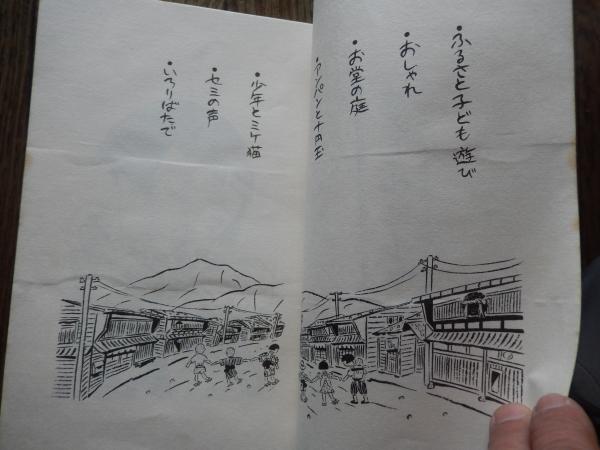 ・ふるさと子ども遊び
・おしゃれ
・お堂の庭
・アンパンと十円玉
・少年とミケ猫
・セミの声
・いろりばたで